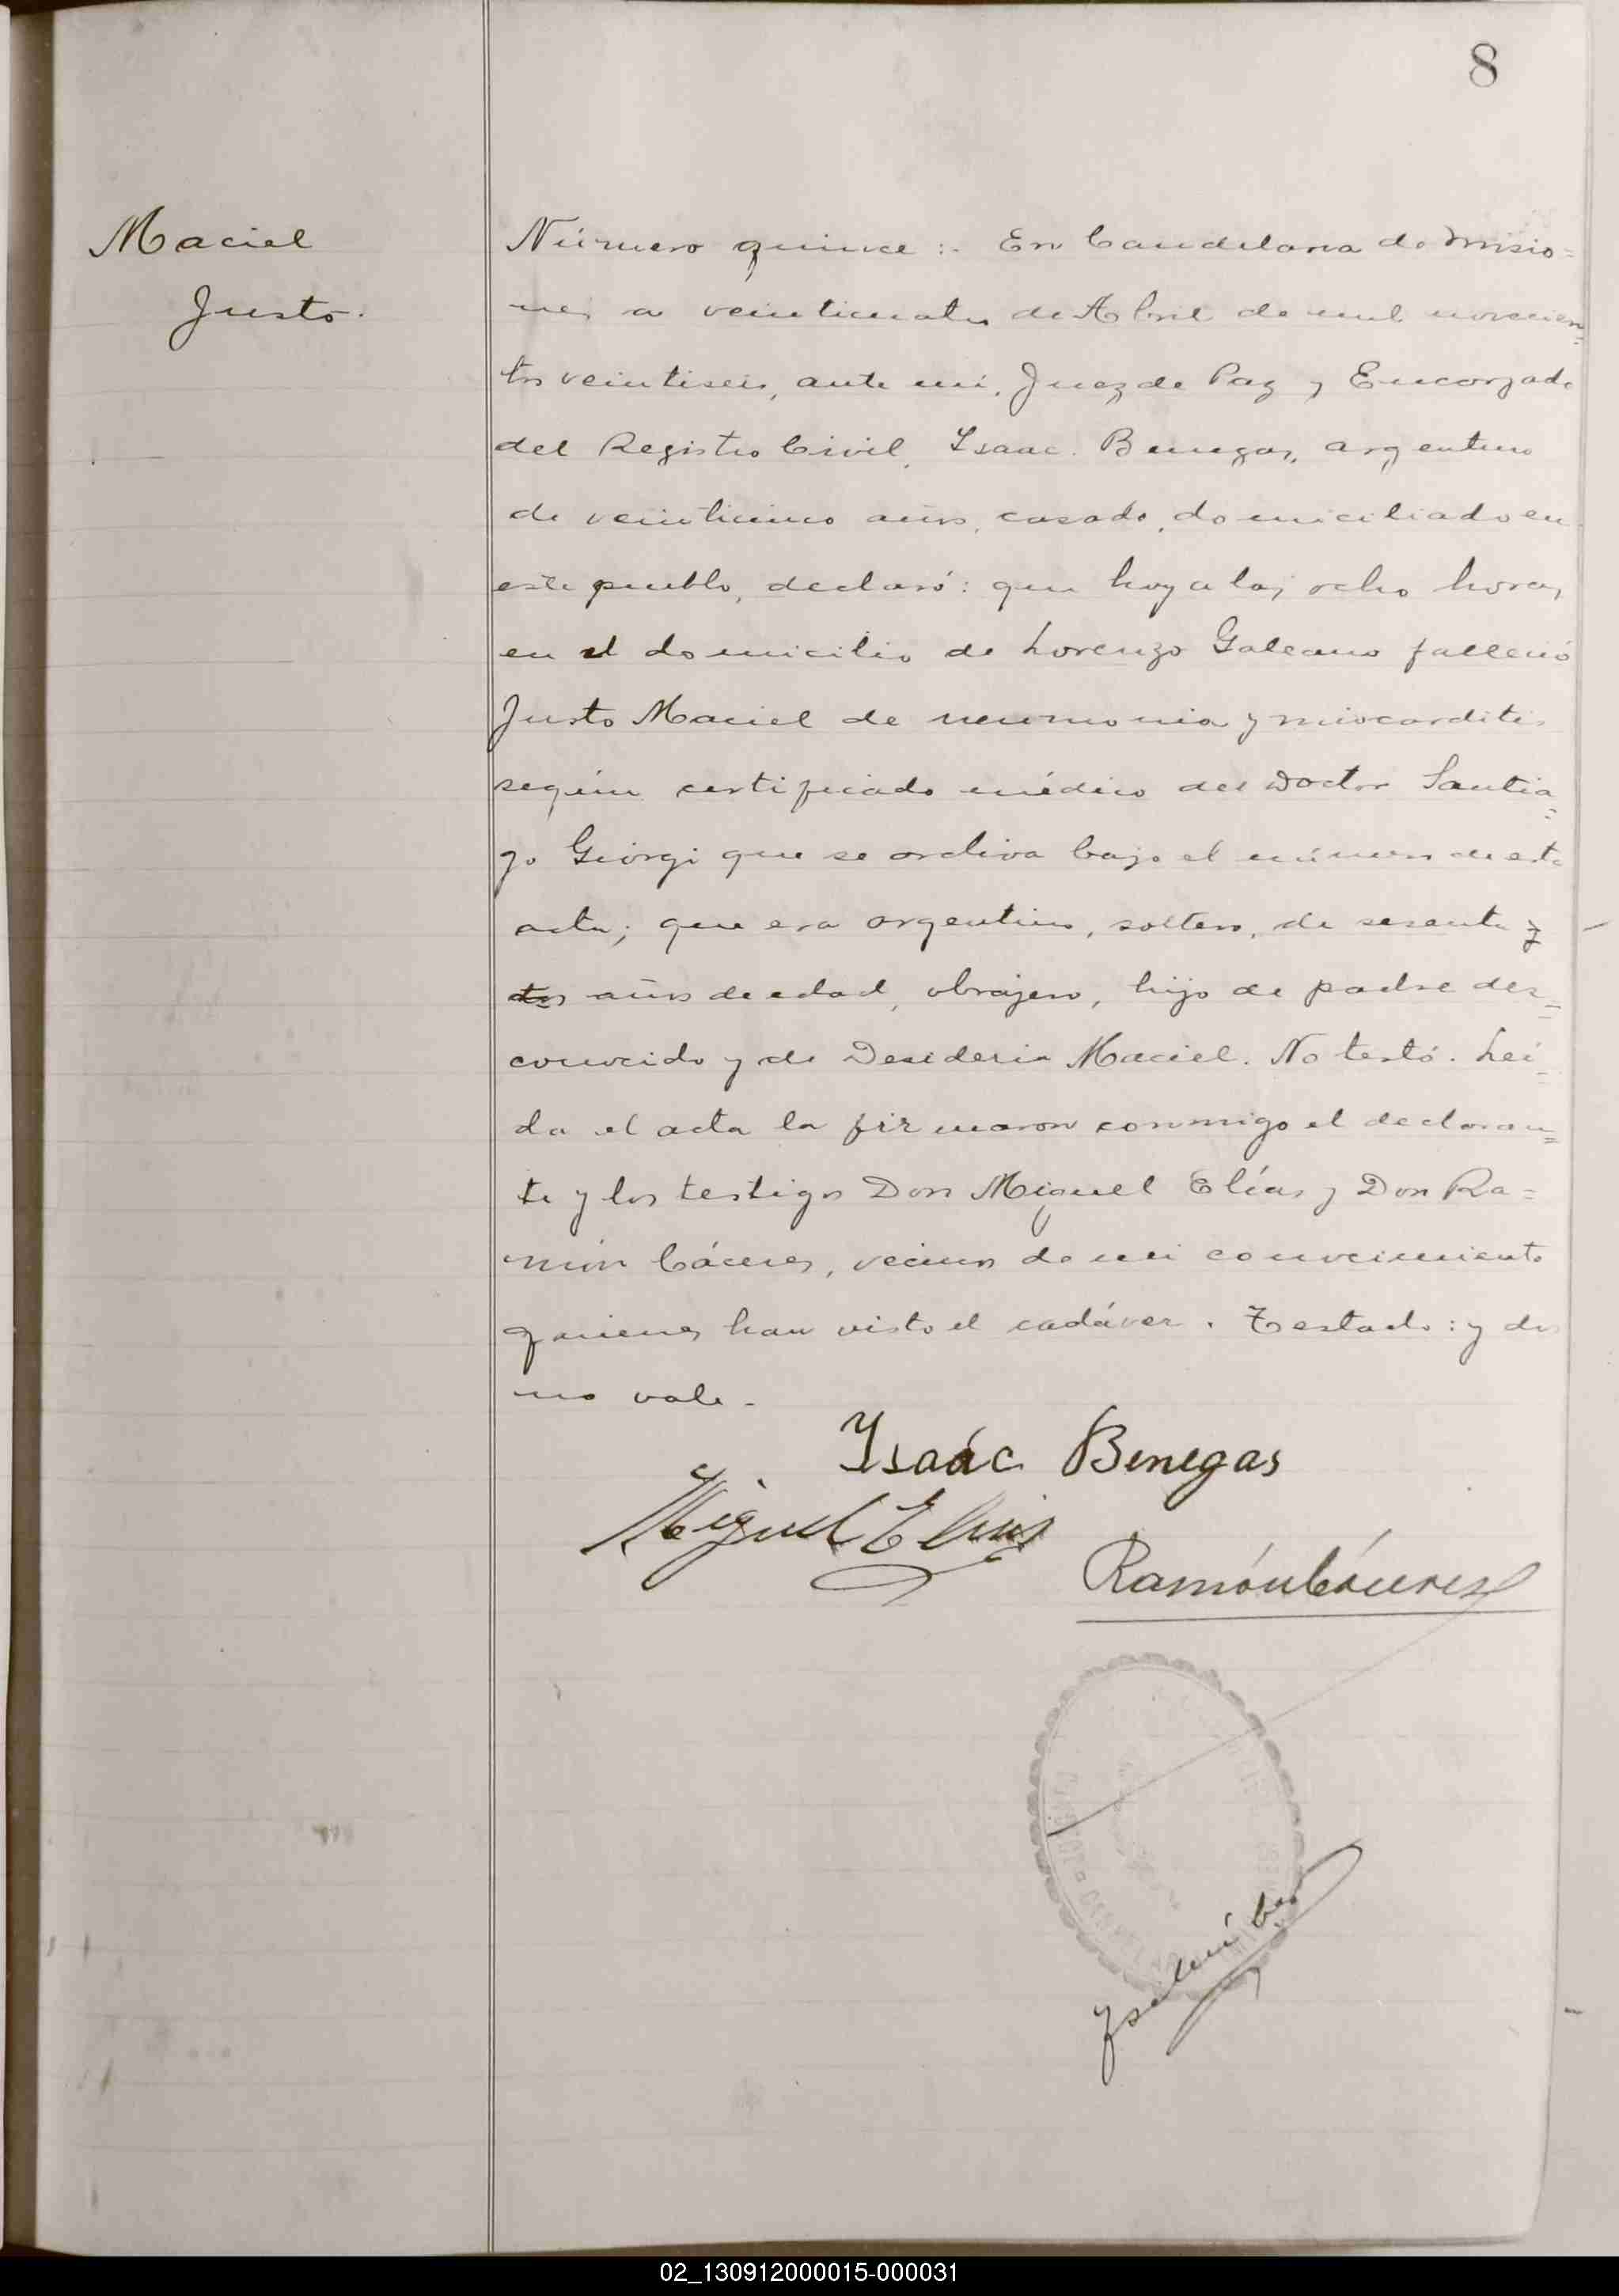 8
Maciel
Justo.
Número quince :- En Candelaria de Misio=
nes a veinticuatro de Abril de mil novecien=
tos veintiseis, ante mí, Juez de Paz y Encargado
del Registro Civil, Isaac Benegas, argentino
de veinticinco años, casado, domiciliado en
este pueblo, declaró: que hoy a las ocho horas,
en el domicilio de Lorenzo Galeano falleció
Justo Maciel de neumonia y miocarditis
según certificado médico del Doctor Santia=
go Giorgi que se archiva bajo el número de esta
acta; que era argentino, soltero, de sesenta y
dos años de edad, obrajero, hijo de padre des=
conocido y de Desideria Maciel. No testó. Leí=
da el acta la firmaron conmigo el declaran=
te y los testigos Don Miguel Elías y Don Ra=
món Cáceres, vecinos de mi conocimiento
quienes han visto el cadáver. Testado: y dos
no vale.
Isaác Benegas
Miguel Elias
Ramón Cáceres
02_130912000015-000031